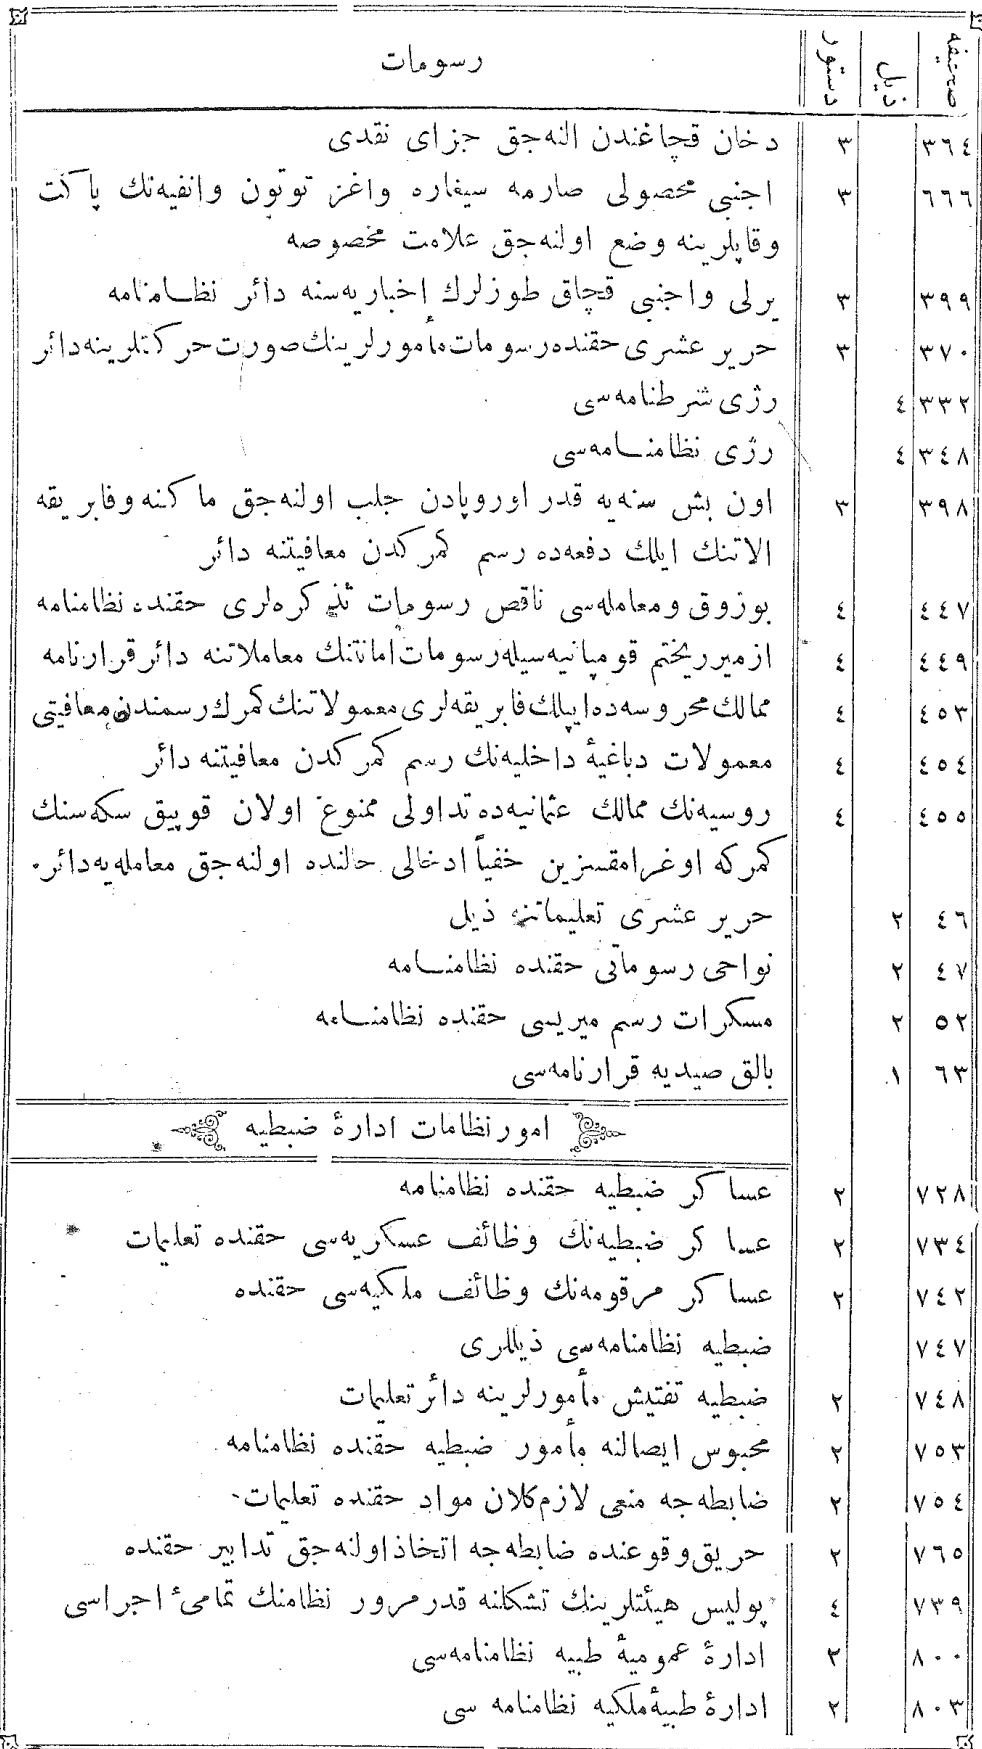 صحیفه ذیل دستور رسومات
٣٦٤ ٣ دخان قچاغندن النه‌جق جزای نقدی
٦٦٦ ٣ اجنبی محصولی صارمه سیغاره واغز توتون وانفیه‌نك پاكت
وقاپلرینه وضع اولنه‌جق علامت مخصوصه
٣٩٩ ٣ یرلی واجنبی قچاق طوزلرك إخباریه‌سنه دائر نظامنامه
٣٧٠ ٣ حریر عشری حقنده رسومات مأمورلرینك صورت حركتلرینه دائر
٣٣٢ ٤ رژی شرطنامه‌سی
٣٤٨ ٤ رژی نظامنامه‌سی
٣٩٨ ٣ اون بش سنه‌یه قدر اوروپادن جلب اولنه‌جق ماكنه وفابریقه
الاتنك ایلك دفعه‌ده رسم كمركدن معافیتنه دائر
٤٤٧ ٤ بوزوق ومعامله‌سی ناقص رسومات تذكره‌لری حقنده نظامنامه
٤٤٩ ٤ ازمیر ریختم قومپانیه‌سیله رسومات امانتنك معاملاتنه دائر قرارنامه
٤٥٣ ٤ ممالك محروسه‌ده ایپلك فابریقه‌لری معمولاتنك كمرك رسمندن معافیتی
٤٥٤ ٤ معمولات دباغیهٔ داخلیه‌نك رسم كمركدن معافیتنه دائر
٤٥٥ ٤ روسیه‌نك ممالك عثمانیه‌ده تداولی ممنوع اولان قوپیق سكه‌سنك
كمركه اوغرامقسزین خفیاً ادخالی حالنده اولنه‌جق معامله‌یه دائر.
٤٦ ٢ حریر عشری تعلیماتنه ذیل
٤٧ ٢ نواحی رسوماتی حقنده نظامنامه
٥٢ ٢ مسكرات رسم میریسی حقنده نظامنامه
٦٣ ١ بالق صیدیه قرارنامه‌سی
امور نظامات ادارهٔ ضبطیه
٧٢٨ ٢ عساكر ضبطیه حقنده نظامنامه
٧٣٤ ٢ عساكر ضبطیه‌نك وظائف عسكریه‌سی حقنده تعلیمات
٧٤٢ ٢ عساكر مرقومه‌نك وظائف ملكیه‌سی حقنده
٧٤٧ ضبطیه نظامنامه‌سی ذیللری
٧٤٨ ٢ ضبطیه تفتیش مأمورلرینه دائر تعلیمات
٧٥٣ ٢ محبوس ایصالنه مأمور ضبطیه حقنده نظامنامه
٧٥٤ ٢ ضابطه‌جه منعی لازم‌كلان مواد حقنده تعلیمات
٧٦٥ ٢ حریق وقوعنده ضابطه‌جه اتخاذ اولنه‌جق تدابیر حقنده
٧٣٩ ٤ پولیس هیئتلرینك تشكلنه قدر مرور نظامنك تمامئ اجراسی
٨٠٠ ٢ ادارهٔ عمومیهٔ طبیه نظامنامه‌سی
٨٠٣ ٢ ادارهٔ طبیهٔ ملكیه نظامنامه سی